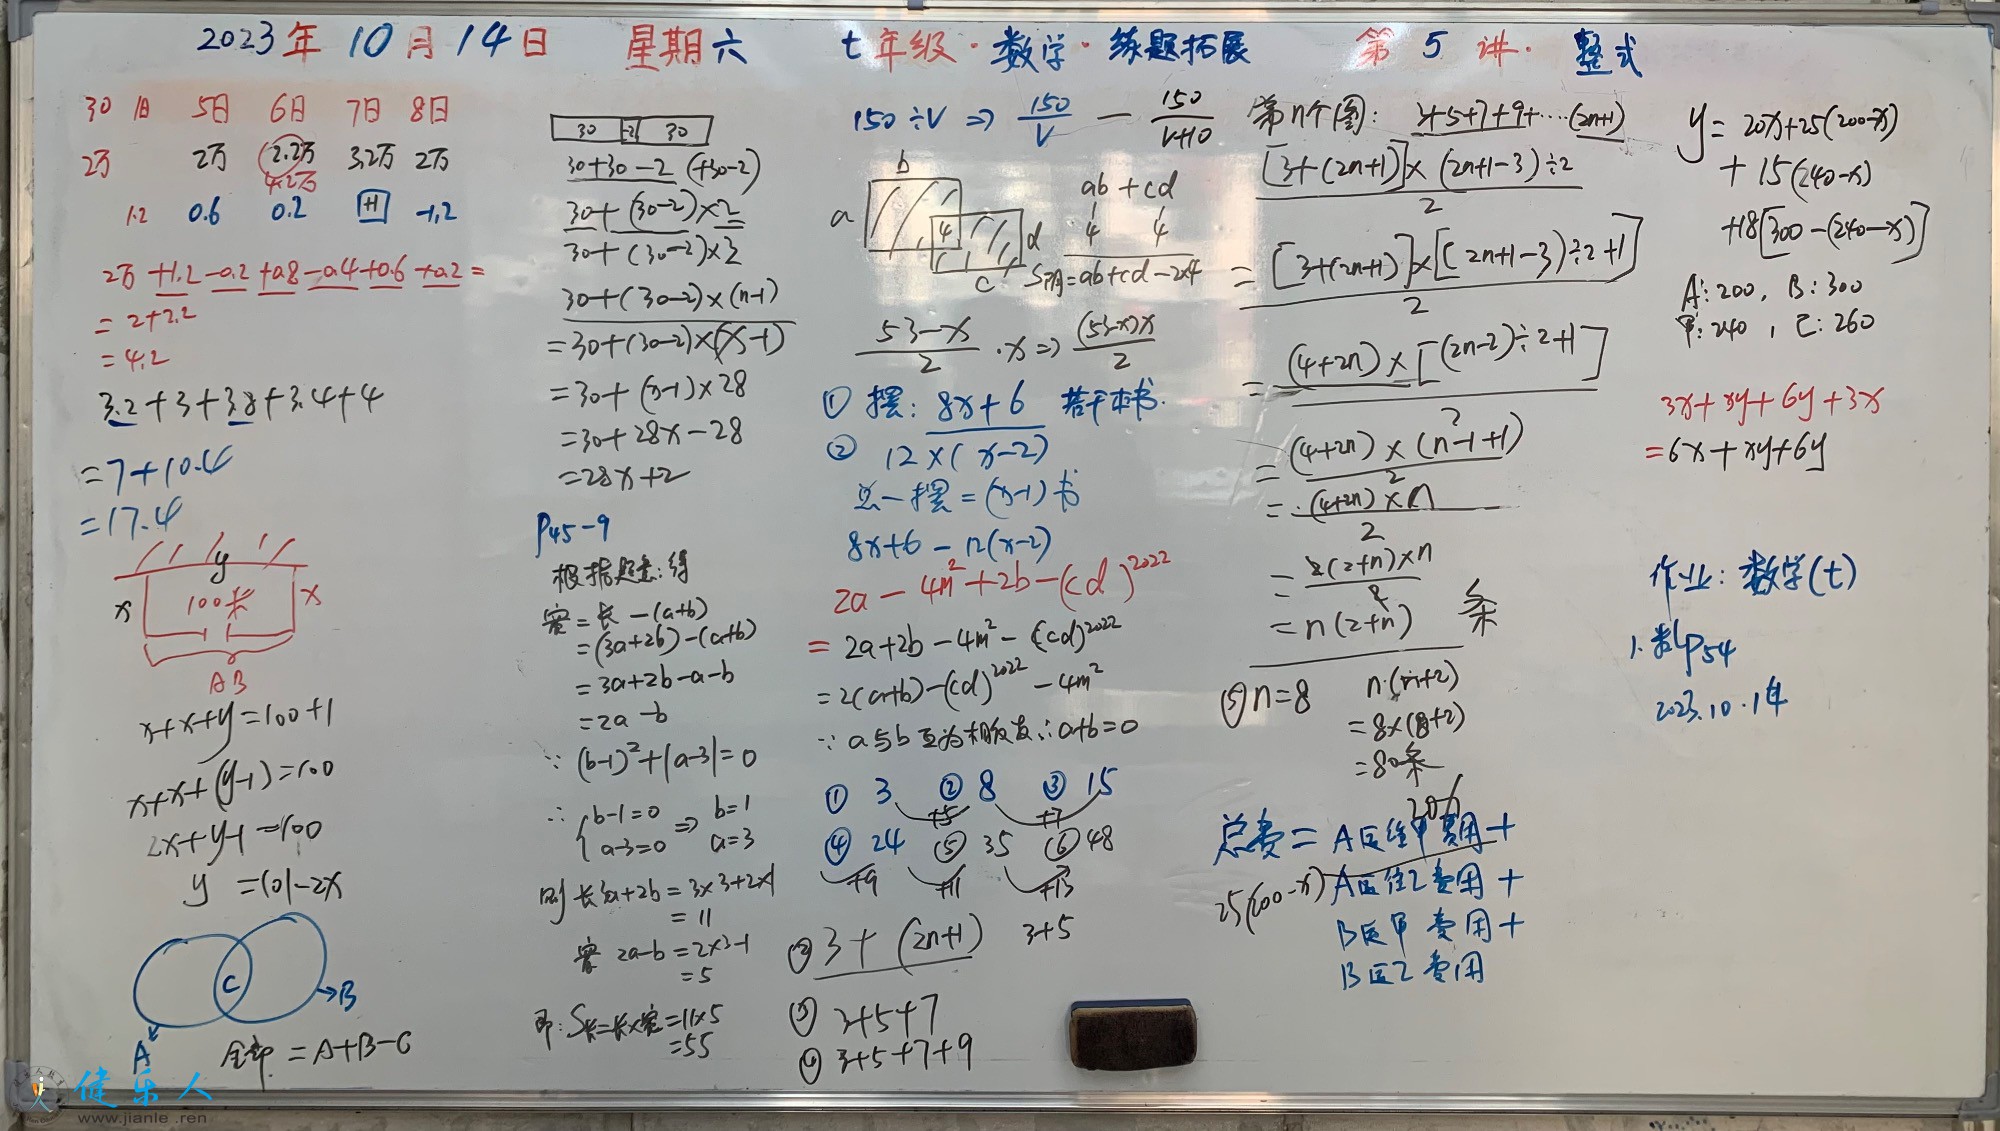 2023年10月14日 星期六 七年级·数学·练题拓展 第5讲·整式
30 1日 5日 6日 7日 8日
2万 2万 2.2万 3.2万 2万
4.2万
1.2 0.6 0.2 +1 -1.2
2万+1.2-0.2+0.8-0.4+0.6+0.2=
=2+2.2
=4.2
3.2+3+3.8+3.4+4
=7+10.4
=17.4
y
x 100米 x
AB
x+x+y=100+1
x+x+(y-1)=100
2x+y-1=100
y=101-2x
C
B
A
全部=A+B-C
30 2 30
30+30-2 (+30-2)
30+(30-2)×2
30+(30-2)×3
30+(30-2)×(n-1)
=30+(30-2)×(x-1)
=30+(x-1)×28
=30+28x-28
=28x+2
P45-9
根据题意:得
宽=长-(a+b)
=(3a+2b)-(a+b)
=3a+2b-a-b
=2a-b
∵(b-1)²+|a-3|=0
∴{b-1=0 ⇒ b=1
a-3=0 a=3
则 长3a+2b=3×3+2×1
=11
宽 2a-b=2×3-1
=5
即:S长=长×宽=11×5
=55
150÷V ⇒ 150/V - 150/(V+10)
b
a 4 d
c
ab+cd
4 4
S阴=ab+cd-2×4
(53-x)/2·x ⇒ (53-x)x/2
① 摆:8x+6 若干本书.
② 12×(x-2)
总一摆=(x-1)书
8x+6-12(x-2)
2a-4m²+2b-(cd)²⁰²²
=2a+2b-4m²-(cd)²⁰²²
=2(a+b)-(cd)²⁰²²-4m²
∵a与b互为相反数∴a+b=0
① 3 ② 8 ③ 15
+5 +7
④ 24 ⑤ 35 ⑥ 48
+9 +11 +13
② 3+(2n+1) 3+5
③ 3+5+7
④ 3+5+7+9
第n个图:3+5+7+9+····(2n+1)
[3+(2n+1)]×(2n+1-3)÷2 / 2
=[3+(2n+1)]×[(2n+1-3)÷2+1] / 2
=(4+2n)×[(2n-2)÷2+1] / 2
=(4+2n)×(n-1+1) / 2
=(4+2n)×n / 2
=2(2+n)×n / 2
=n(2+n) 条
⑤n=8 n·(n+2)
=8×(8+2)
=80条
20x
总费=A区给甲费用+
25(200-x) A区给乙费用+
B区甲费用+
B区乙费用
y=20x+25(200-x)
+15(240-x)
+18[300-(240-x)]
A:200, B:300
甲:240, 乙:260
3x+xy+6y+3x
=6x+xy+6y
作业:数学(七)
1.数P54
2023.10.14
健乐人
www.jianle.ren